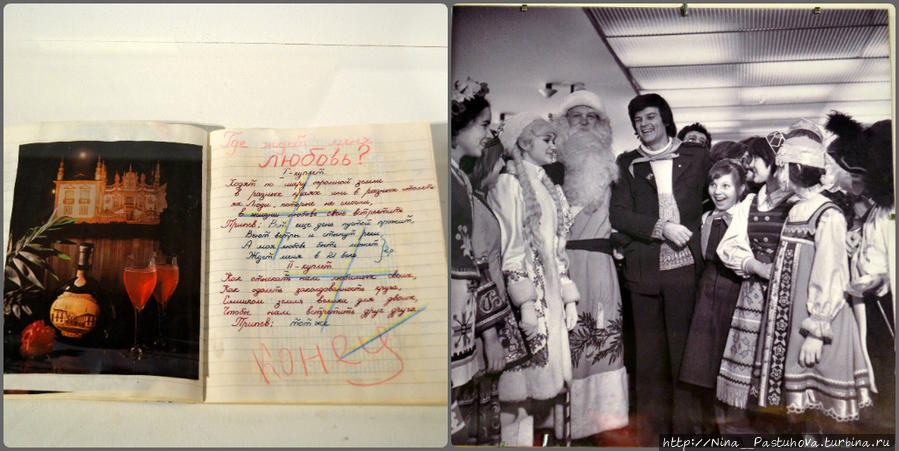 Где ждет меня
ЛЮБОВЬ?
I-куплет
Ходят по миру огромной земли
В разных краях они в разных
Люди, которые не смогли,
В жизни любовь свою встретить
Припев: Вот еще день пустой прожит,
Воют ветры и стынут реки
А моя любовь быть может
Ждет меня в 21 веке
2р
II-куплет
Как отыскать нам любимых своих,
Как одолеть заколдованность круга,
Слишком земля велика для двоих,
Чтобы нам встретить друг друга
Припев: тот же
КОНЕЦ
http://Nina__Pastuhova.turbina.ru